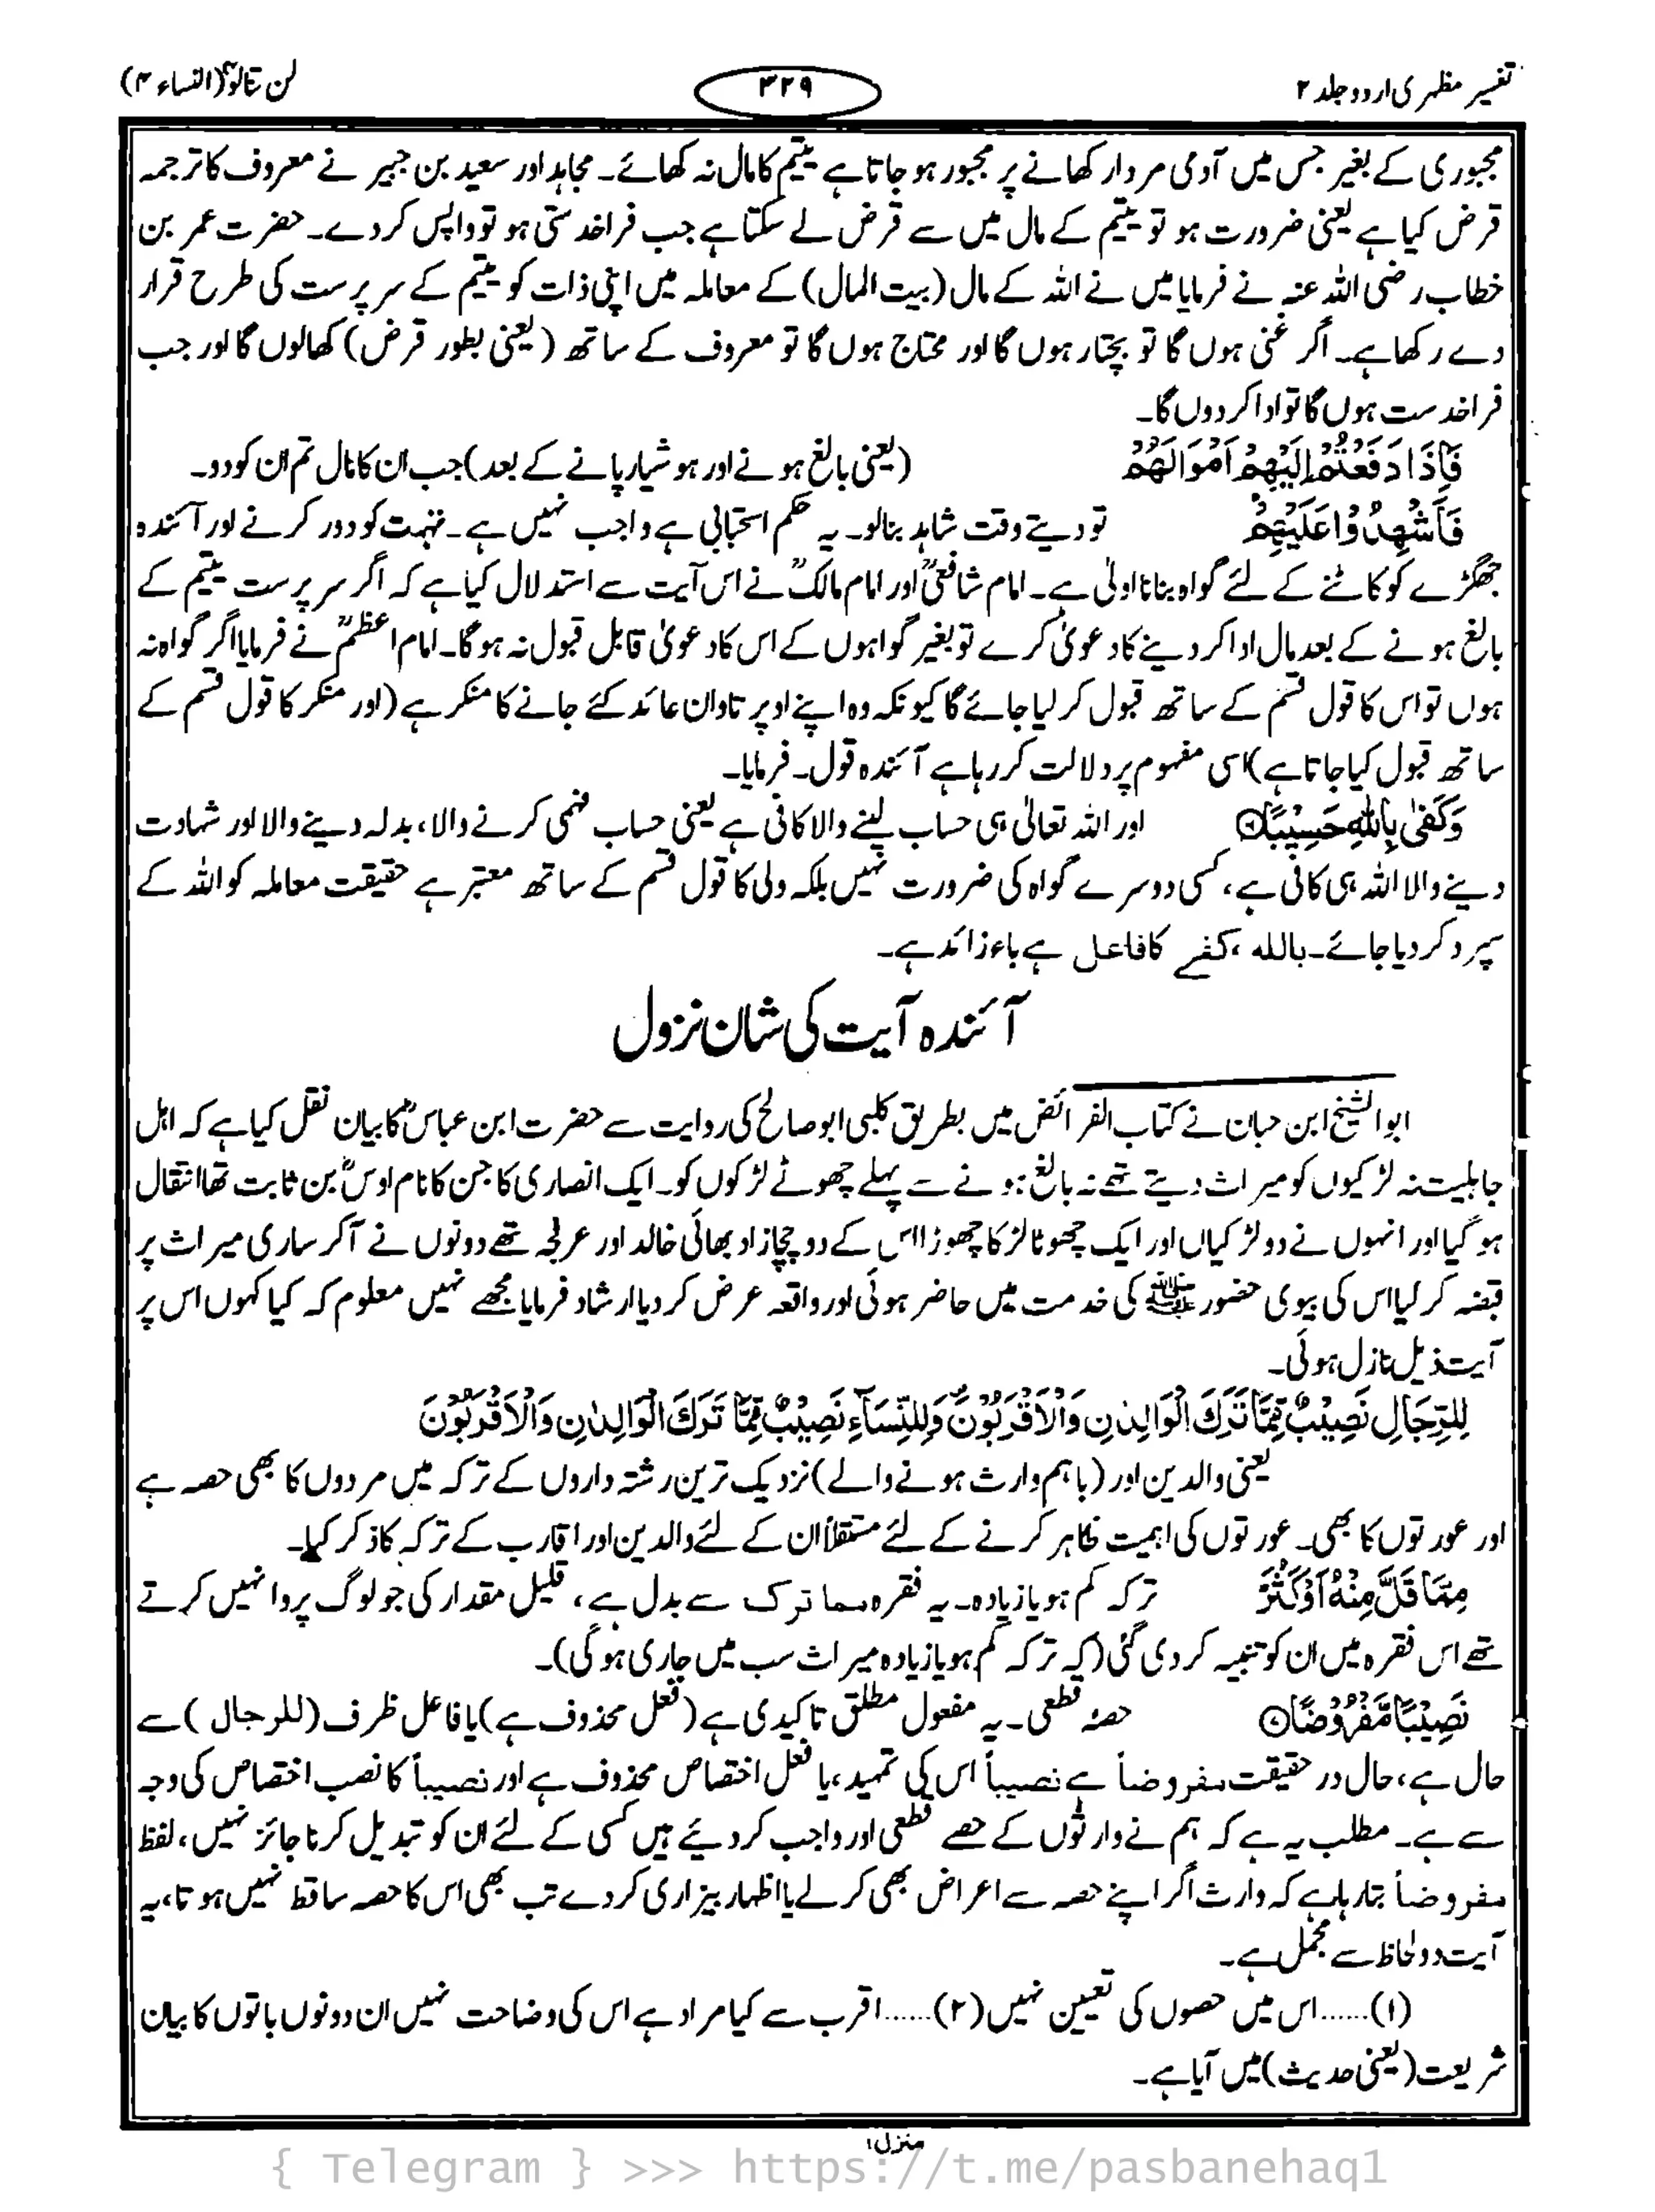 تفسیر مظہری اردو جلد ۲
۳۲۹
لن تنالو۴ (النساء ۴)
مجبوری کے بغیر جس میں آدمی مردار کھانے پر مجبور ہو جاتا ہے یتیم کا مال نہ کھائے۔ مجاہد اور سعید بن جبیر نے معروف کا ترجمہ
قرض کیا ہے یعنی ضرورت ہو تو یتیم کے مال میں سے قرض لے سکتا ہے جب فراخدستی ہو تو واپس کر دے۔ حضرت عمر بن
خطاب رضی اللہ عنہ نے فرمایا میں نے اللہ کے مال (بیت المال) کے معاملہ میں اپنی ذات کو یتیم کے سرپرست کی طرح قرار
دے رکھا ہے۔ اگر غنی ہوں گا تو بچتا رہوں گا اور محتاج ہوں گا تو معروف کے ساتھ (یعنی بطور قرض) کھالوں گا اور جب
فراخدست ہوں گا تو ادا کر دوں گا۔
فَاِذَا دَفَعْتُمْ اِلَيْهِمْ اَمْوَالَهُمْ (یعنی بالغ ہونے اور ہوشیار پانے کے بعد) جب ان کا مال تم ان کو دو۔
فَاَشْهِدُوْا عَلَيْهِمْ تو دیتے وقت شاہد بنالو۔ یہ حکم استحبابی ہے واجب نہیں ہے۔ تہمت کو دور کرنے اور آئندہ
جھگڑے کو کاٹنے کے لئے گواہ بنانا اولیٰ ہے۔ امام شافعیؒ اور امام مالکؒ نے اس آیت سے استدلال کیا ہے کہ اگر سرپرست یتیم کے
بالغ ہونے کے بعد مال ادا کر دینے کا دعویٰ کرے تو بغیر گواہوں کے اس کا دعویٰ قابل قبول نہ ہوگا۔ امام اعظمؒ نے فرمایا اگر گواہ نہ
ہوں تو اس کا قول قسم کے ساتھ قبول کر لیا جائے گا کیونکہ وہ اپنے اوپر تاوان عائد کئے جانے کا منکر ہے (اور منکر کا قول قسم کے
ساتھ قبول کیا جاتا ہے) اسی مفہوم پر دلالت کر رہا ہے آئندہ قول۔ فرمایا۔
وَكَفٰى بِاللّٰهِ حَسِيْبًا ۶ اور اللہ تعالیٰ ہی حساب لینے والا کافی ہے یعنی حساب فہمی کرنے والا، بدلہ دینے والا اور شہادت
دینے والا اللہ ہی کافی ہے، کسی دوسرے گواہ کی ضرورت نہیں بلکہ ولی کا قول قسم کے ساتھ معتبر ہے حقیقت معاملہ کو اللہ کے
سپرد کر دیا جائے۔ باللہ، کفے کا فاعل ہے باء زائد ہے۔
آئندہ آیت کی شان نزول
ابو الشیخ ابن حبان نے کتاب الفرائض میں بطریق کلبی ابو صالح کی روایت سے حضرت ابن عباسؓ کا بیان نقل کیا ہے کہ اہل
جاہلیت نہ لڑکیوں کو میراث دیتے تھے نہ بالغ ہونے سے پہلے چھوٹے لڑکوں کو۔ ایک انصاری کا جن کا نام اوسؓ بن ثابت تھا انتقال
ہو گیا اور انہوں نے دو لڑکیاں اور ایک چھوٹا لڑکا چھوڑا اس کے دو چچازاد بھائی خالد اور عرفجہ تھے دونوں نے آ کر ساری میراث پر
قبضہ کر لیا اس کی بیوی حضور ﷺ کی خدمت میں حاضر ہوئی اور واقعہ عرض کر دیا ارشاد فرمایا مجھے نہیں معلوم کہ کیا کہوں اس پر
آیت ذیل نازل ہوئی۔
لِلرِّجَالِ نَصِيْبٌ مِّمَّا تَرَكَ الْوَالِدٰنِ وَالْاَقْرَبُوْنَ وَلِلنِّسَآءِ نَصِيْبٌ مِّمَّا تَرَكَ الْوَالِدٰنِ وَالْاَقْرَبُوْنَ
یعنی والدین اور (باہم وارث ہونے والے) نزدیک ترین رشتہ داروں کے ترکہ میں مردوں کا بھی حصہ ہے
اور عورتوں کا بھی۔ عورتوں کی اہمیت ظاہر کرنے کے لئے مستقلاً ان کے لئے والدین اور اقارب کے ترکہ کا ذکر کیا۔
مِمَّا قَلَّ مِنْهُ اَوْ كَثُرَ ترکہ کم ہو یا زیادہ۔ یہ فقرہ مما ترک سے بدل ہے، قلیل مقدار کی جو لوگ پروا نہیں کرتے
تھے اس فقرہ میں ان کو تنبیہ کر دی گئی (کہ ترکہ کم ہو یا زیادہ میراث سب میں جاری ہو گی)۔
نَصِيْبًا مَّفْرُوْضًا ۷ حصۂ قطعی۔ یہ مفعول مطلق تاکیدی ہے (فعل محذوف ہے) یا فاعل ظرف (للرجال) سے
حال ہے، حال در حقیقت مفروضاً ہے نصیباً اس کی تمہید، یا فعل اختصاص محذوف ہے اور نصیباً کا نصب اختصاص کی وجہ
سے ہے۔ مطلب یہ ہے کہ ہم نے وارثوں کے حصے قطعی اور واجب کر دیئے ہیں کسی کے لئے ان کو تبدیل کرنا جائز نہیں، لفظ
مفروضاً بتا رہا ہے کہ وارث اگر اپنے حصہ سے اعراض بھی کر لے یا اظہار بیزاری کر دے تب بھی اس کا حصہ ساقط نہیں ہوتا، یہ
آیت دو لحاظ سے مجمل ہے۔
(۱)......اس میں حصوں کی تعیین نہیں (۲)......اقرب سے کیا مراد ہے اس کی وضاحت نہیں ان دونوں باتوں کا بیان
شریعت (یعنی حدیث) میں آیا ہے۔
منزل۱
{ Telegram } >>> https://t.me/pasbanehaq1